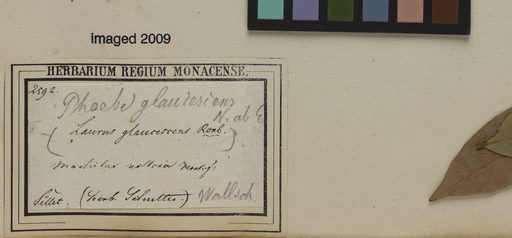 imaged 2009
HERBARIUM REGIUM MONACENSE.
2592.
Phoebe glaucescens
N. ab E
(Laurus glaucescens Roxb.)
Machilus
Sillet. (herb. Schultes.) Wallich.